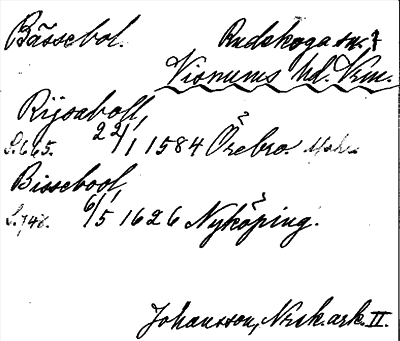 Bässebol. Rudskoga sn.
Visnums hd. Vrm.
Rijsaboll,
S. 665. 22/1 1584 Örebro.
Bissebool,
S. 748. 6/5 1626 Nyköping.
Johansson, Nask. ark. II.